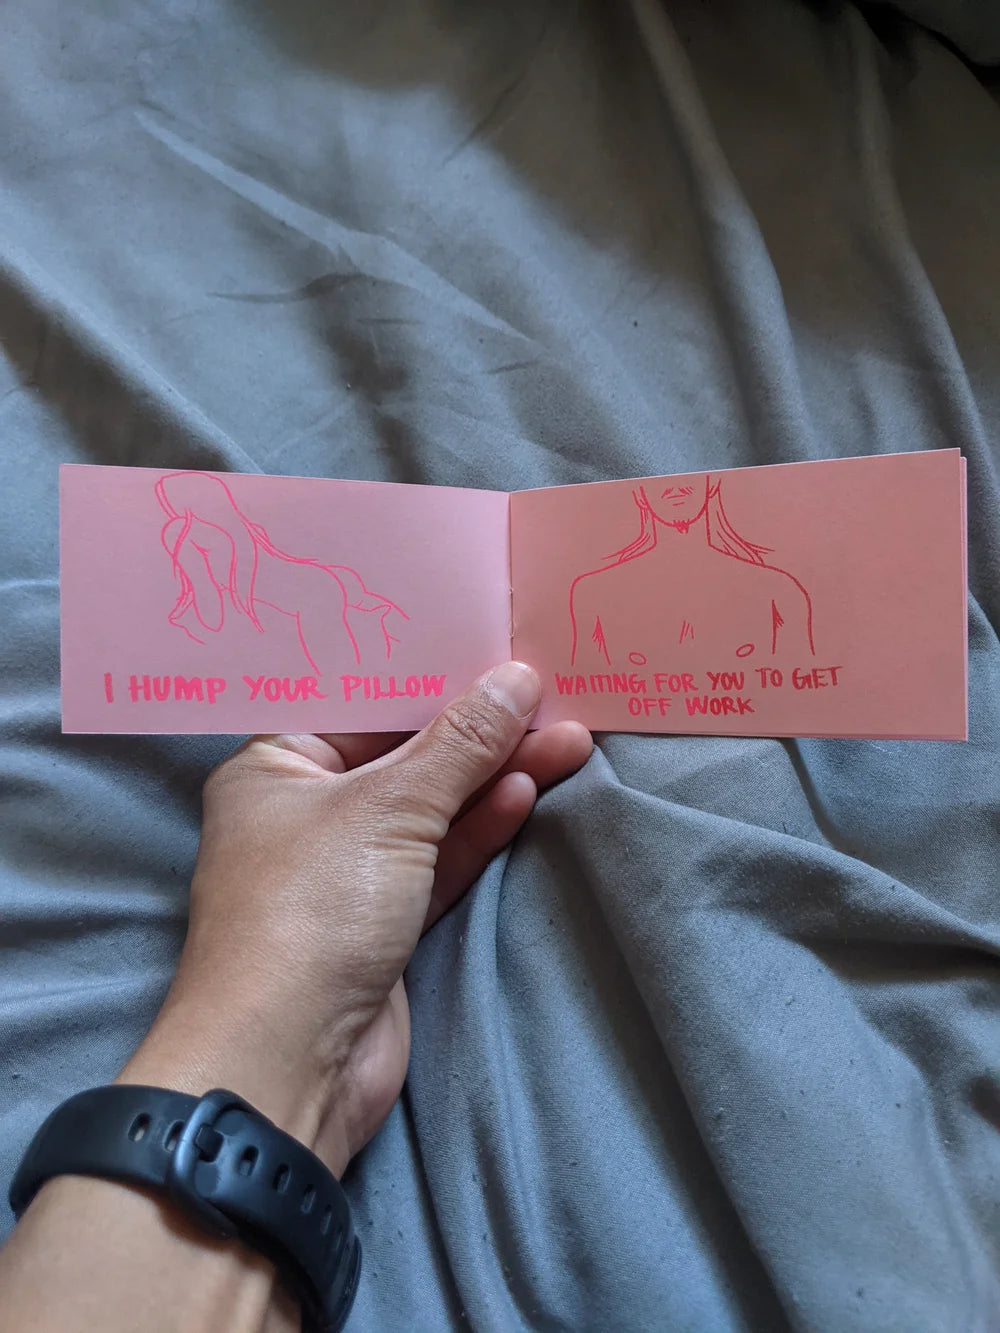 I HUMP YOUR PILLOW
WAITING FOR YOU TO GET
OFF WORK